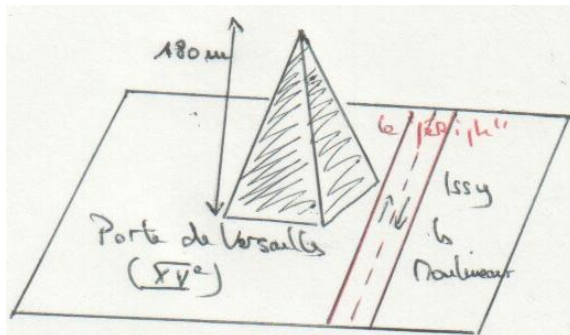 180m
le "périph"
Issy
les
Moulineaux
Porte de Versailles
(XVe)